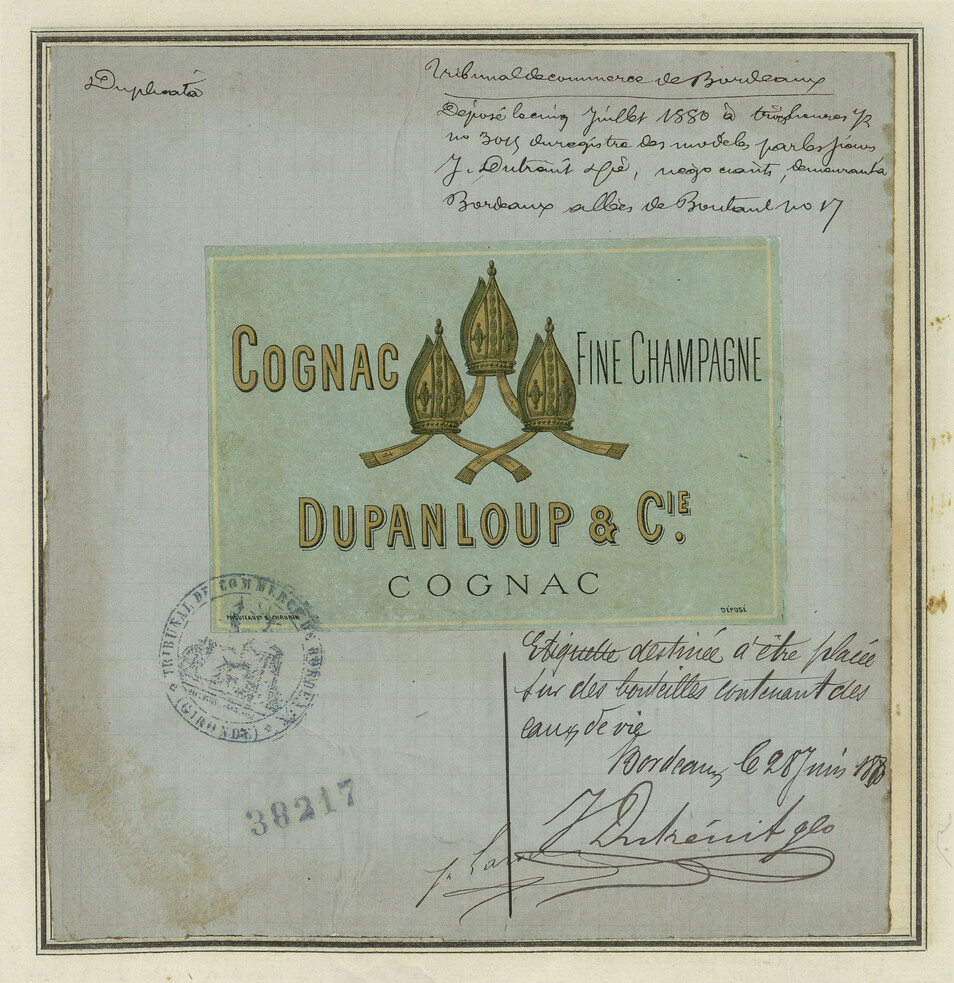 Duplicata
Tribunal de commerce de Bordeaux
Déposé le cinq Juillet 1880 à trois heures 1/2
no 3015 du registre des modèles par les sieurs
J. Dutrénit & Cie, négociants, demeurant à
Bordeaux allées de Boutaut no 17
COGNAC
FINE CHAMPAGNE
DUPANLOUP & CIE.
COGNAC
PROUTEAUX & CHAUDIN
DÉPOSÉ
TRIBUNAL DE COMMERCE DE BORDEAUX
(GIRONDE)
Etiquette destinée à être placée
sur des bouteilles contenant des
eaux de vie
Bordeaux, le 28 Juin 1880
J Dutrénit &Co
38217